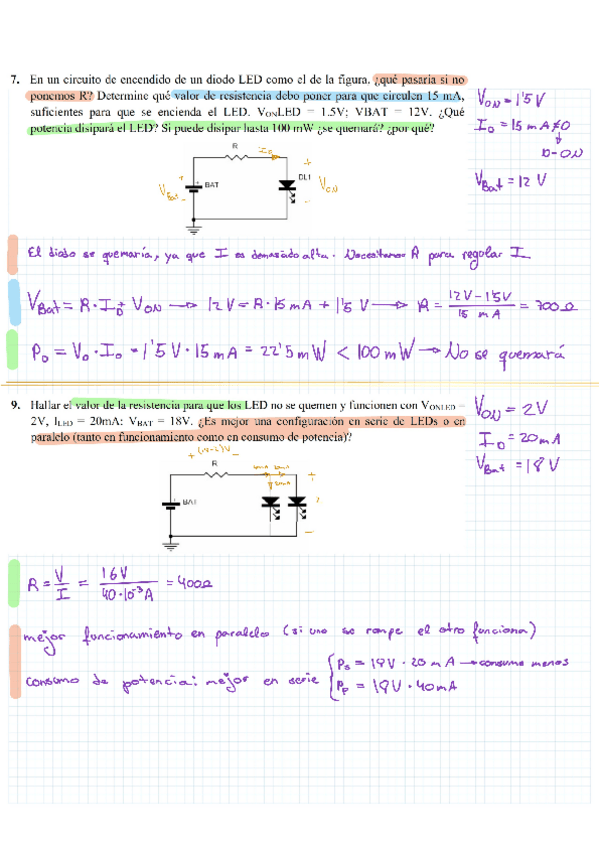 7. En un circuito de encendido de un diodo LED como el de la figura. ¿qué pasaría si no
ponemos R? Determine qué valor de resistencia debo poner para que circulen 15 mA,
suficientes para que se encienda el LED. VONLED = 1.5V; VBAT = 12V. ¿Qué
potencia disipará el LED? Si puede disipar hasta 100 mW ¿se quemará? ¿por qué?
VON = 1'5 V
ID = 15 mA ≠ 0
↓
D-ON
VBat = 12 V
R
ID
+
BAT
DL1
VBat
VON
El diodo se quemaría, ya que I es demasiado alta. Necesitamos R para regular I
VBat = R · ID + VON → 12 V = R · 15 mA + 1'5 V → R = 12 V - 1'5 V / 15 mA = 700 Ω
PD = VD · ID = 1'5 V · 15 mA = 22'5 mW < 100 mW → No se quemará
9. Hallar el valor de la resistencia para que los LED no se quemen y funcionen con VONLED =
2V, ILED = 20mA: VBAT = 18V. ¿Es mejor una configuración en serie de LEDs o en
paralelo (tanto en funcionamiento como en consumo de potencia)?
VON = 2V
ID = 20mA
VBat = 18V
+ (18-2)V -
R
40mA 20mA
20mA
+
-
R = V / I = 16V / 40·10⁻³A = 400Ω
mejor funcionamiento en paralelo (si uno se rompe el otro funciona)
consumo de potencia: mejor en serie
Ps = 18V · 20 mA → consume menos
Pp = 18V · 40mA